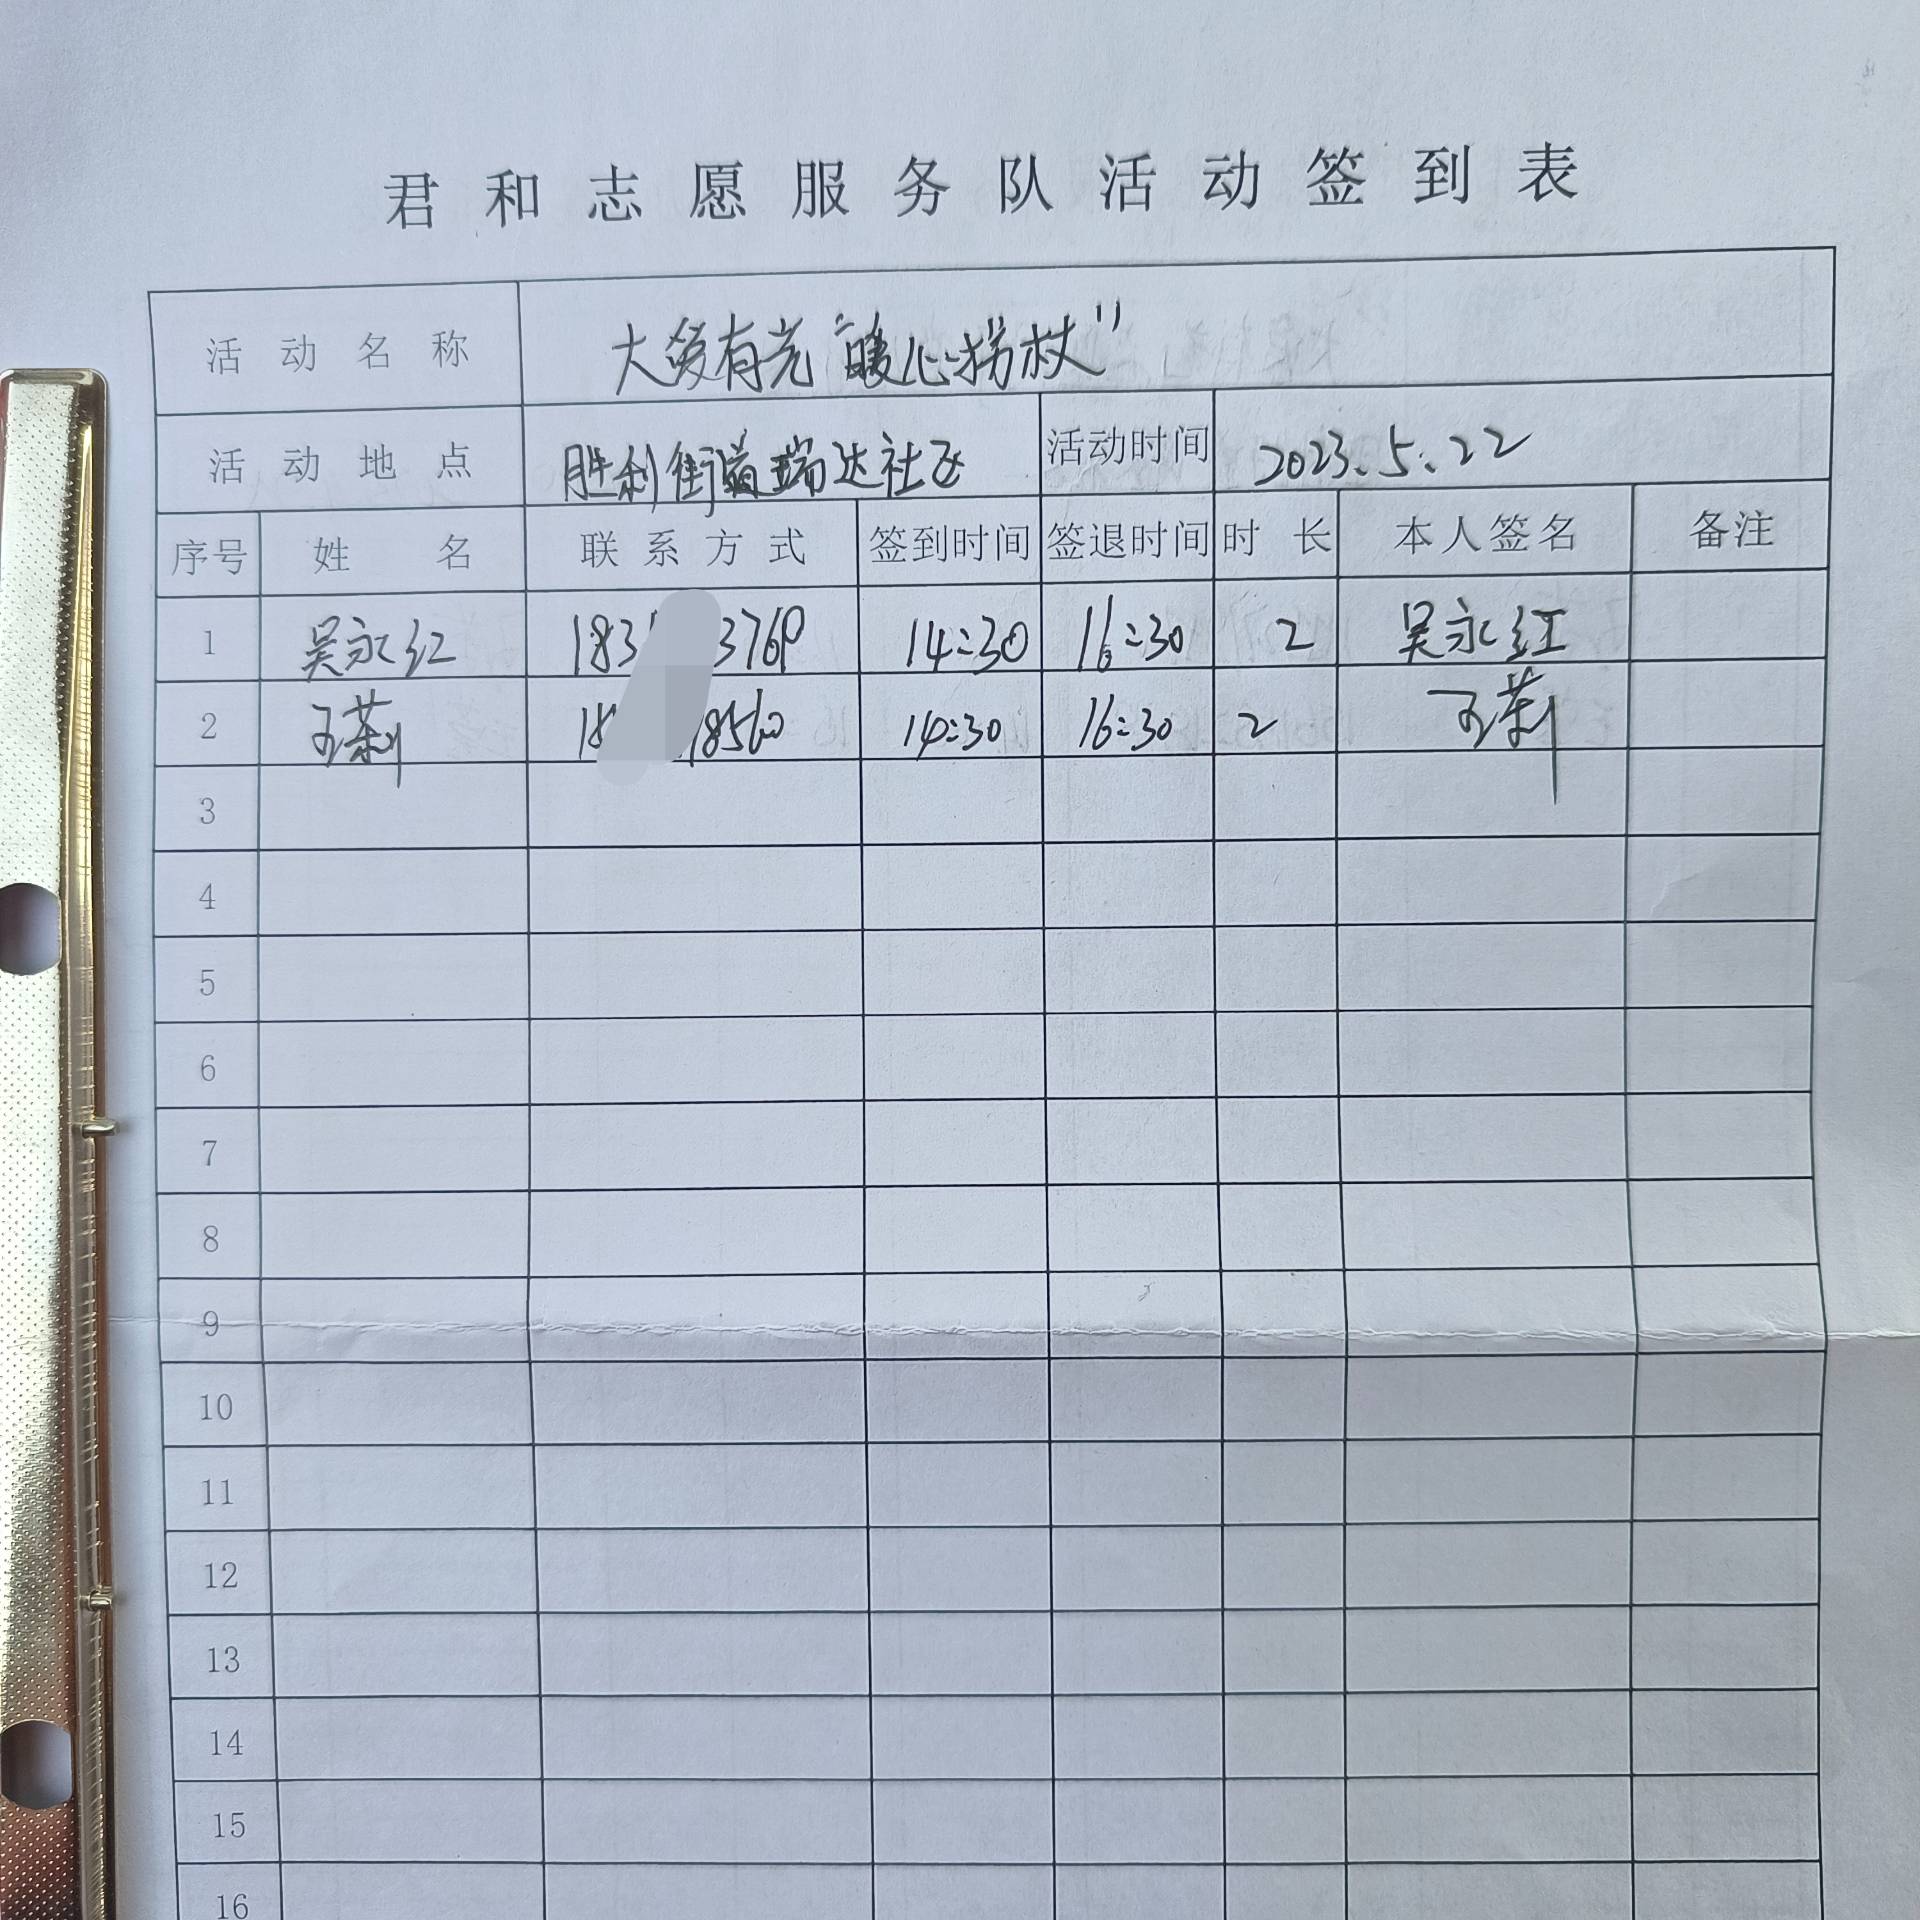 君和志愿服务队活动签到表
活动名称 大爱有光“暖心拐杖”
活动地点 胜利街道瑞达社区 活动时间 2023.5.22
序号 姓名 联系方式 签到时间 签退时间 时长 本人签名 备注
1 吴永红 183 3760 14:30 16:30 2 吴永红
2 王莉 18 8560 14:30 16:30 2 王莉
3
4
5
6
7
8
9
10
11
12
13
14
15
16